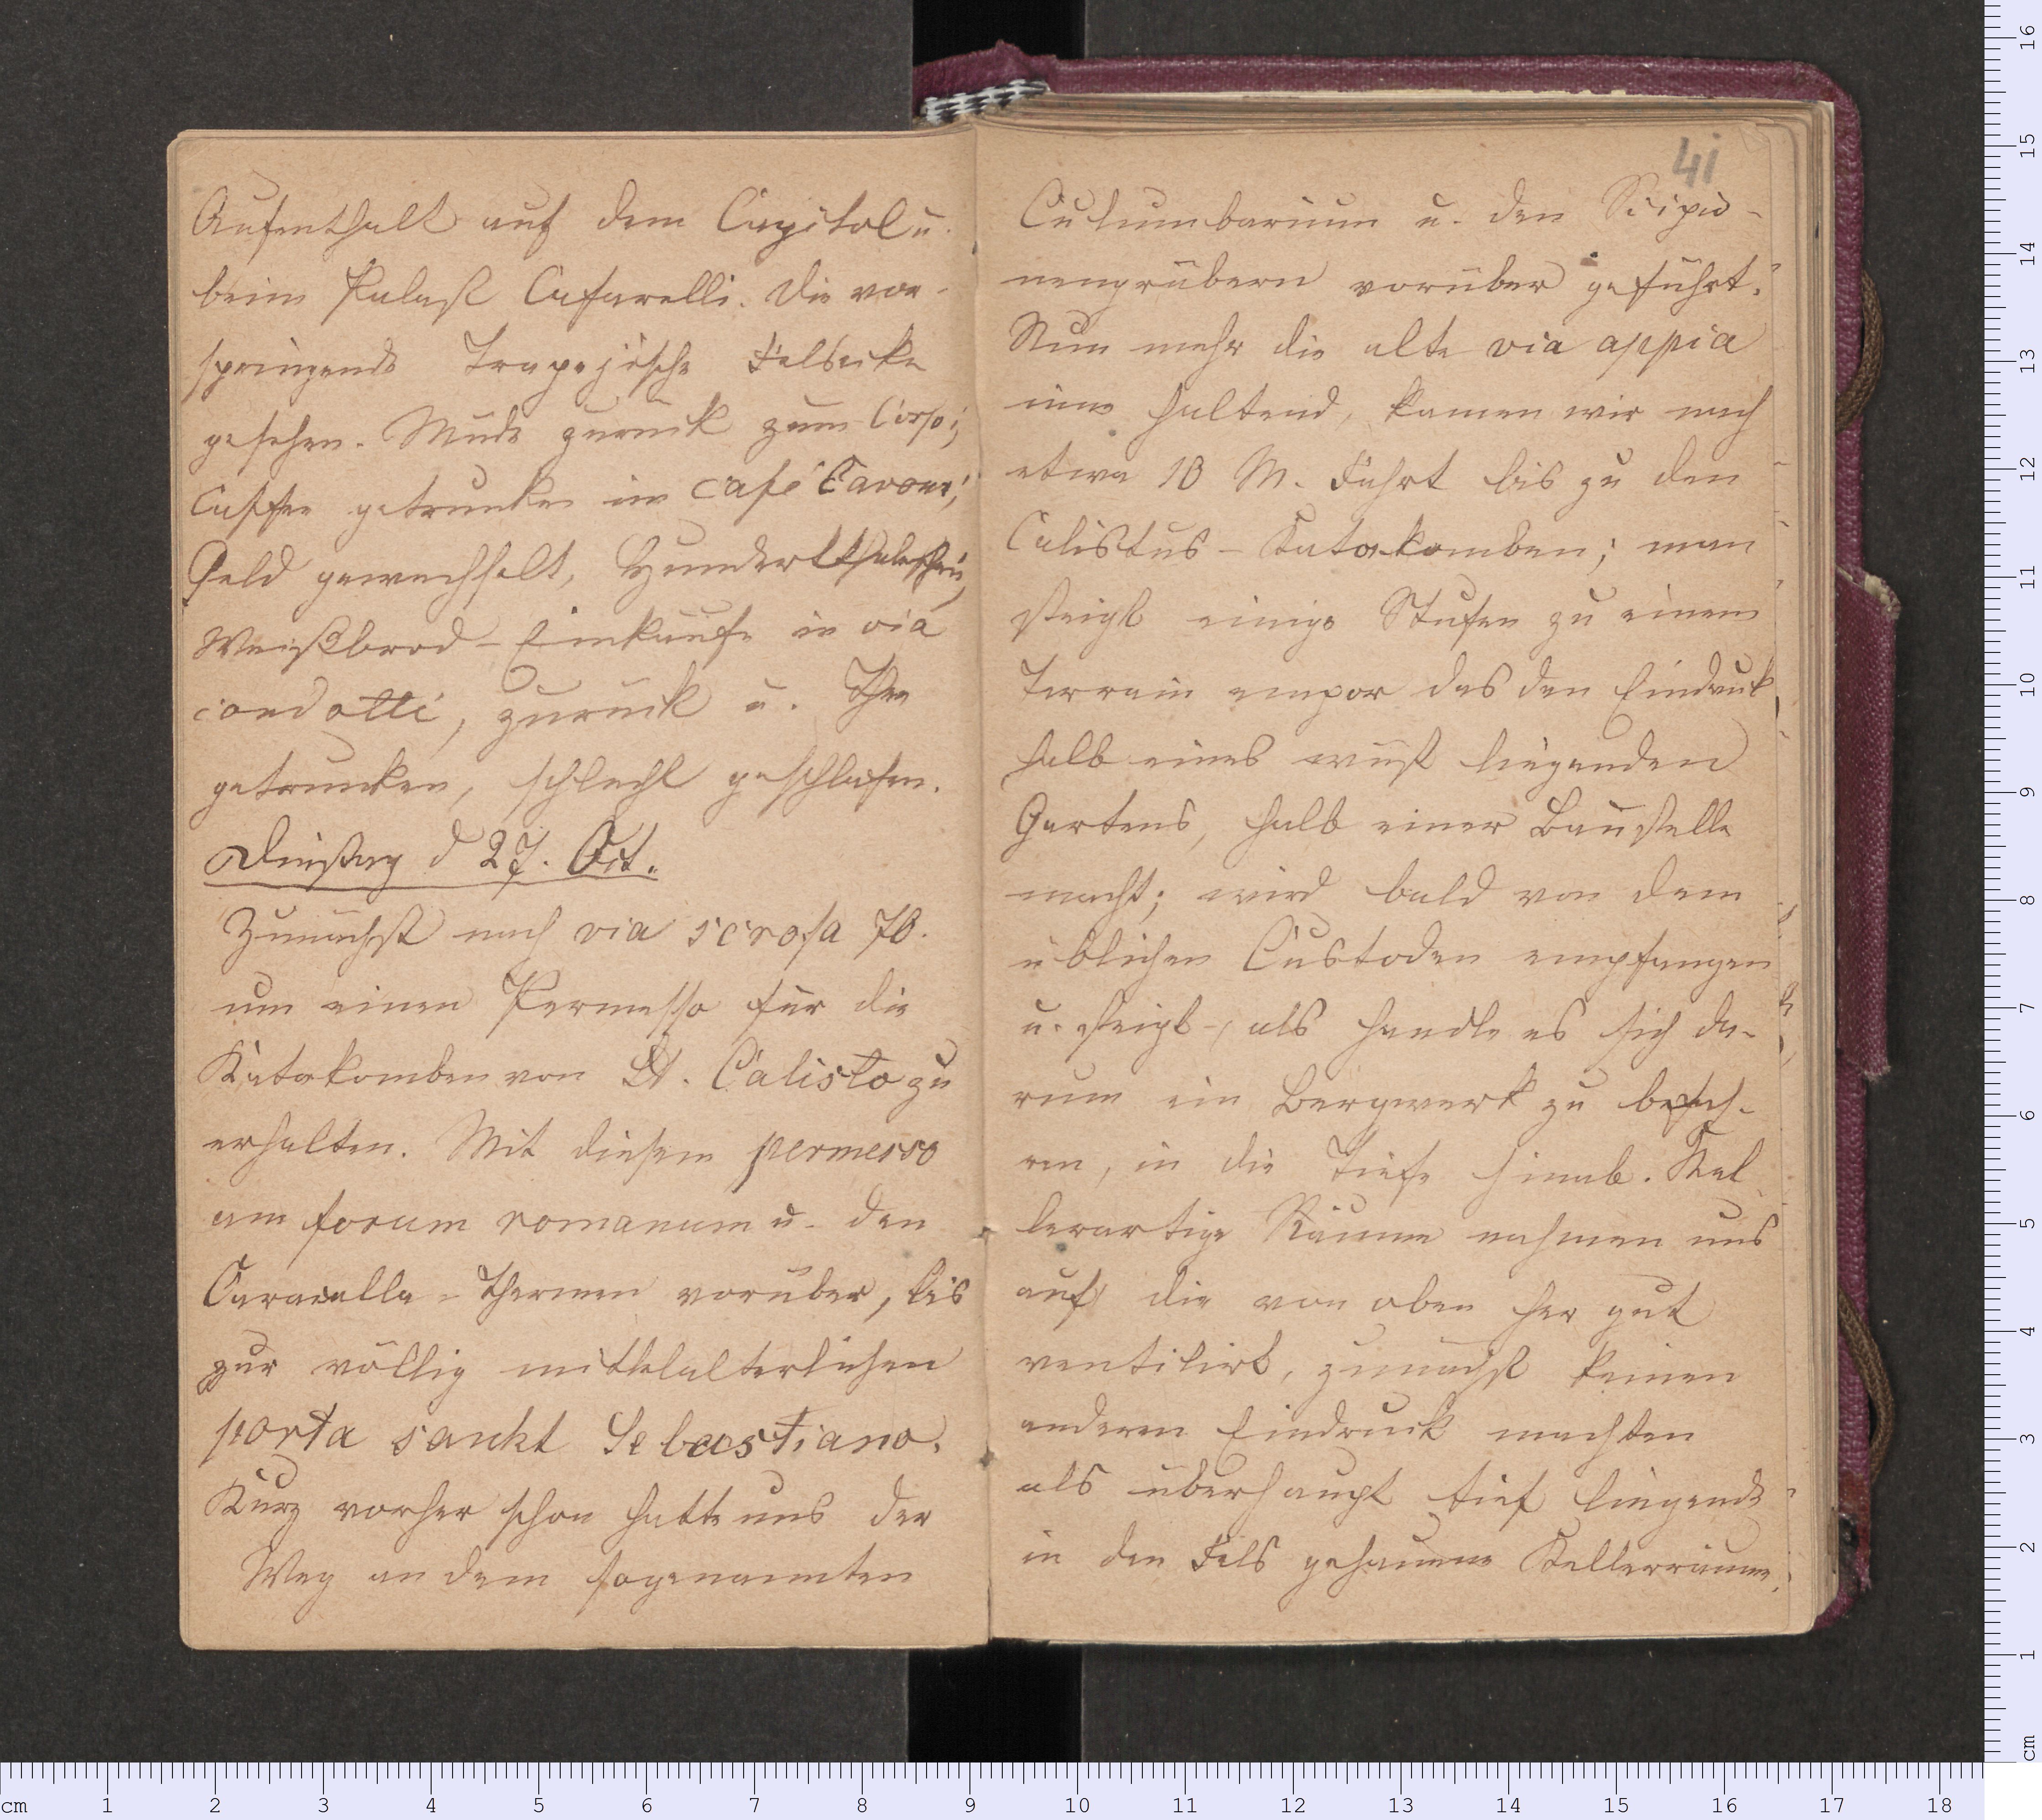 Aufenthalt auf dem Capitol u.
beim Palast Cafarelli. Die vor-
springende Trapejische Felsecke
gesehen. Müde zurück zum Corso;
Caffee getrunken im Café Cavour;
Geld gewechselt, Hundertthalerschein,
Weißbrod-Einkäufe in via
condotti, zurück u. Thee
getrunken, schlecht geschlafen.
Dinstag d 27. Oct.
Zunächst nach via scrofa 70.
um einen Permesso für die
Katakomben von St. Calisto zu
erhalten. Mit diesem permesso
am forum romanum u. den
Caracalla-Thermen vorüber, bis
zur völlig mittelalterlichen
porta sankt Sebastiano.
Kurz vorher schon hatte uns der
Weg an dem sogenannten
41
Columbarium u. den Scipio-
nengräbern vorüber geführt.
Nun mehr die alte via appia
inne haltend, kamen wir nach
etwa 10 M. Fahrt bis zu den
Calistus-Katakomben; man
steigt einige Stufen zu einem
Terrain empor das den Eindruck
halb eines wüst liegenden
Gartens, halb einer Baustelle
macht; wird bald von dem
üblichen Custoden empfangen
u. steigt, als handle es sich da-
rum ein Bergwerk zu befah-
ren, in die Tiefe hinab. Kel
lerartige Räume nahmen uns
auf die von oben her gut
ventilirt, zunächst keinen
anderen Eindruck machten
als überhaupt tief liegende
in den Fels gehauene Kellerräume.